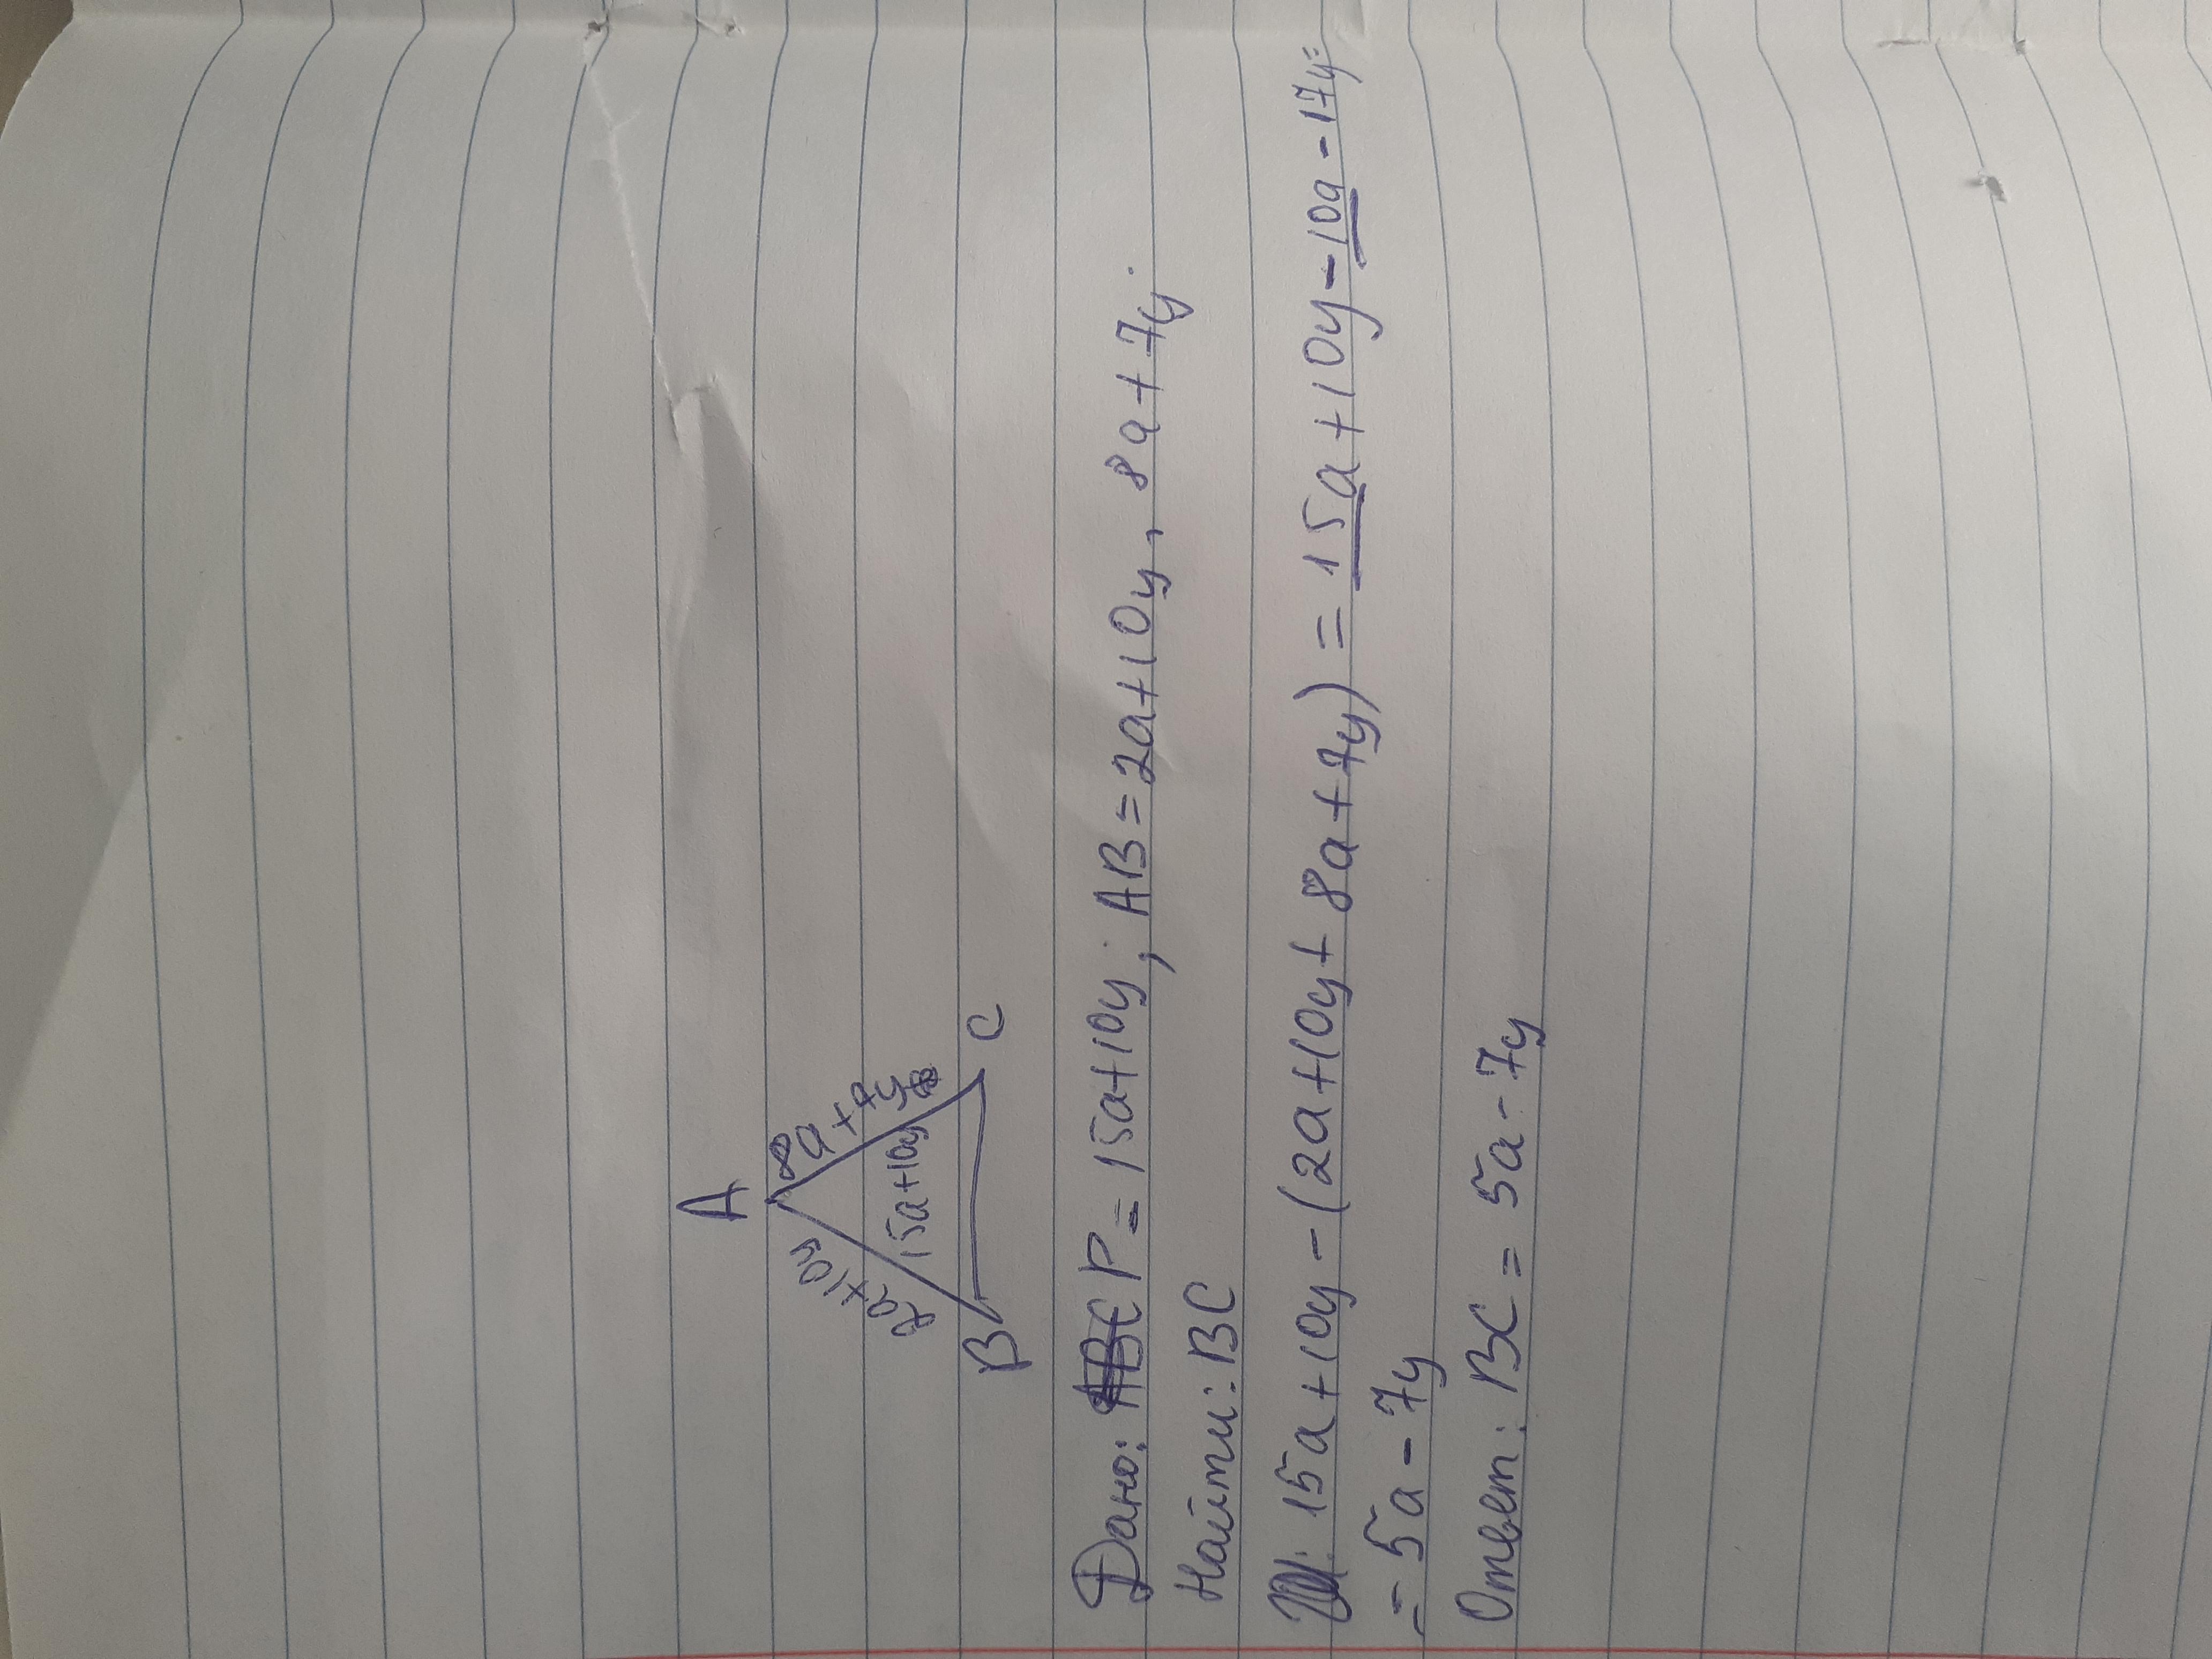 A
2a+10y
8a+7y
15a+10y
B
C
Дано: P=15a+10y; AB=2a+10y, 8a+7y.
Найти: BC
15a+10y-(2a+10y+8a+7y)=15a+10y-10a-17y=
=5a-7y
Ответ: BC=5a-7y